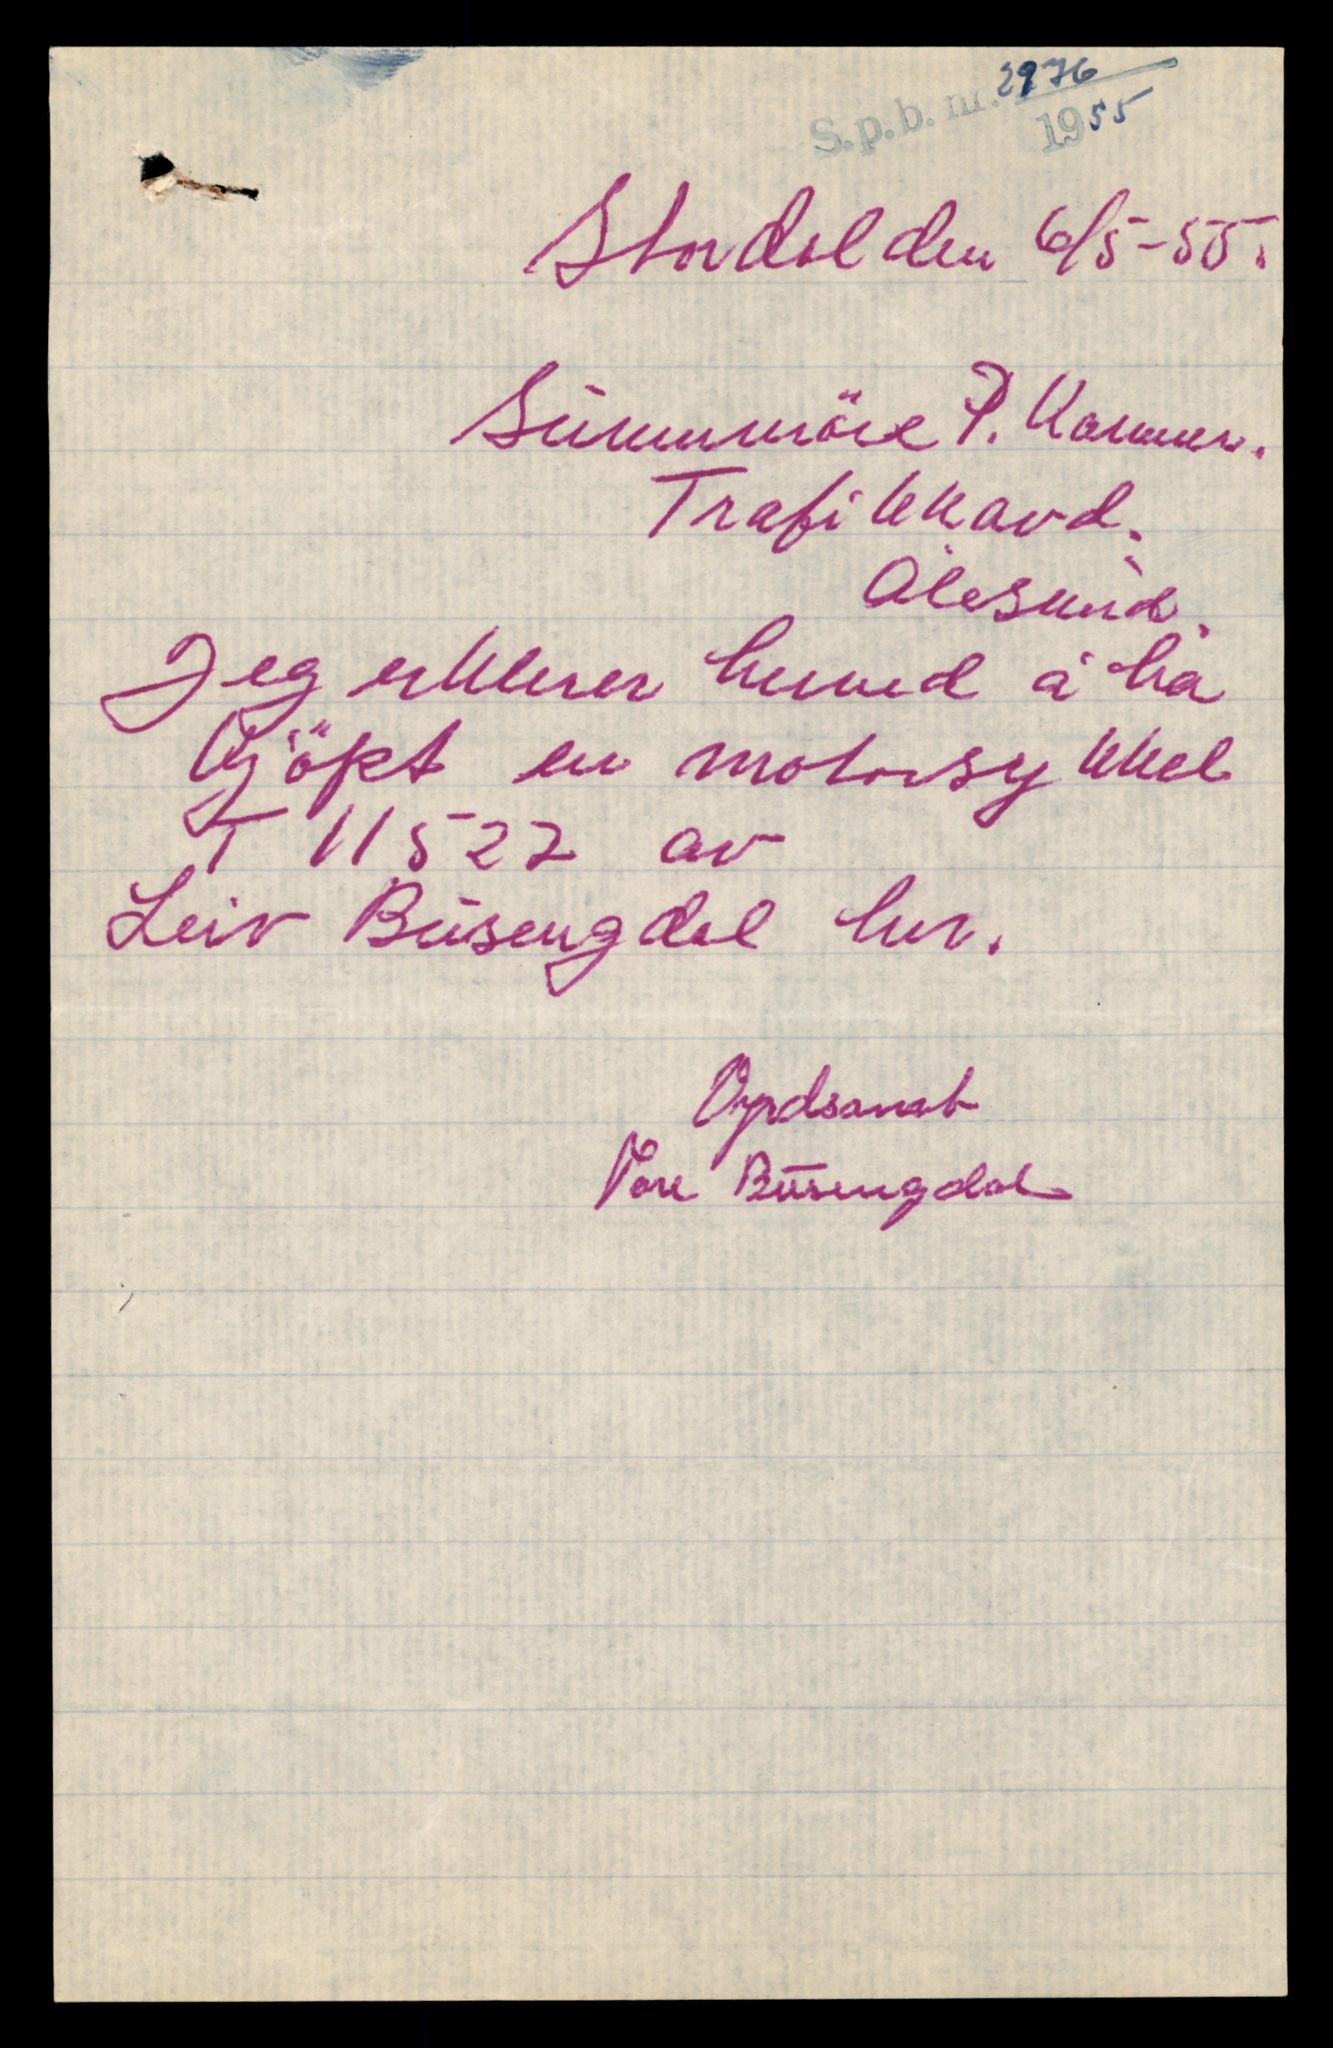 S.p.b. nr. 2976
1955
Stordal den 6/5-55.
Sunnmöre P. Kammer.
Trafikkavd.
Ålesund.
Jeg erklerer herved å ha
kjöpt en motorsykkel
T 11522 av
Leiv Busengdal her.
Busengdal